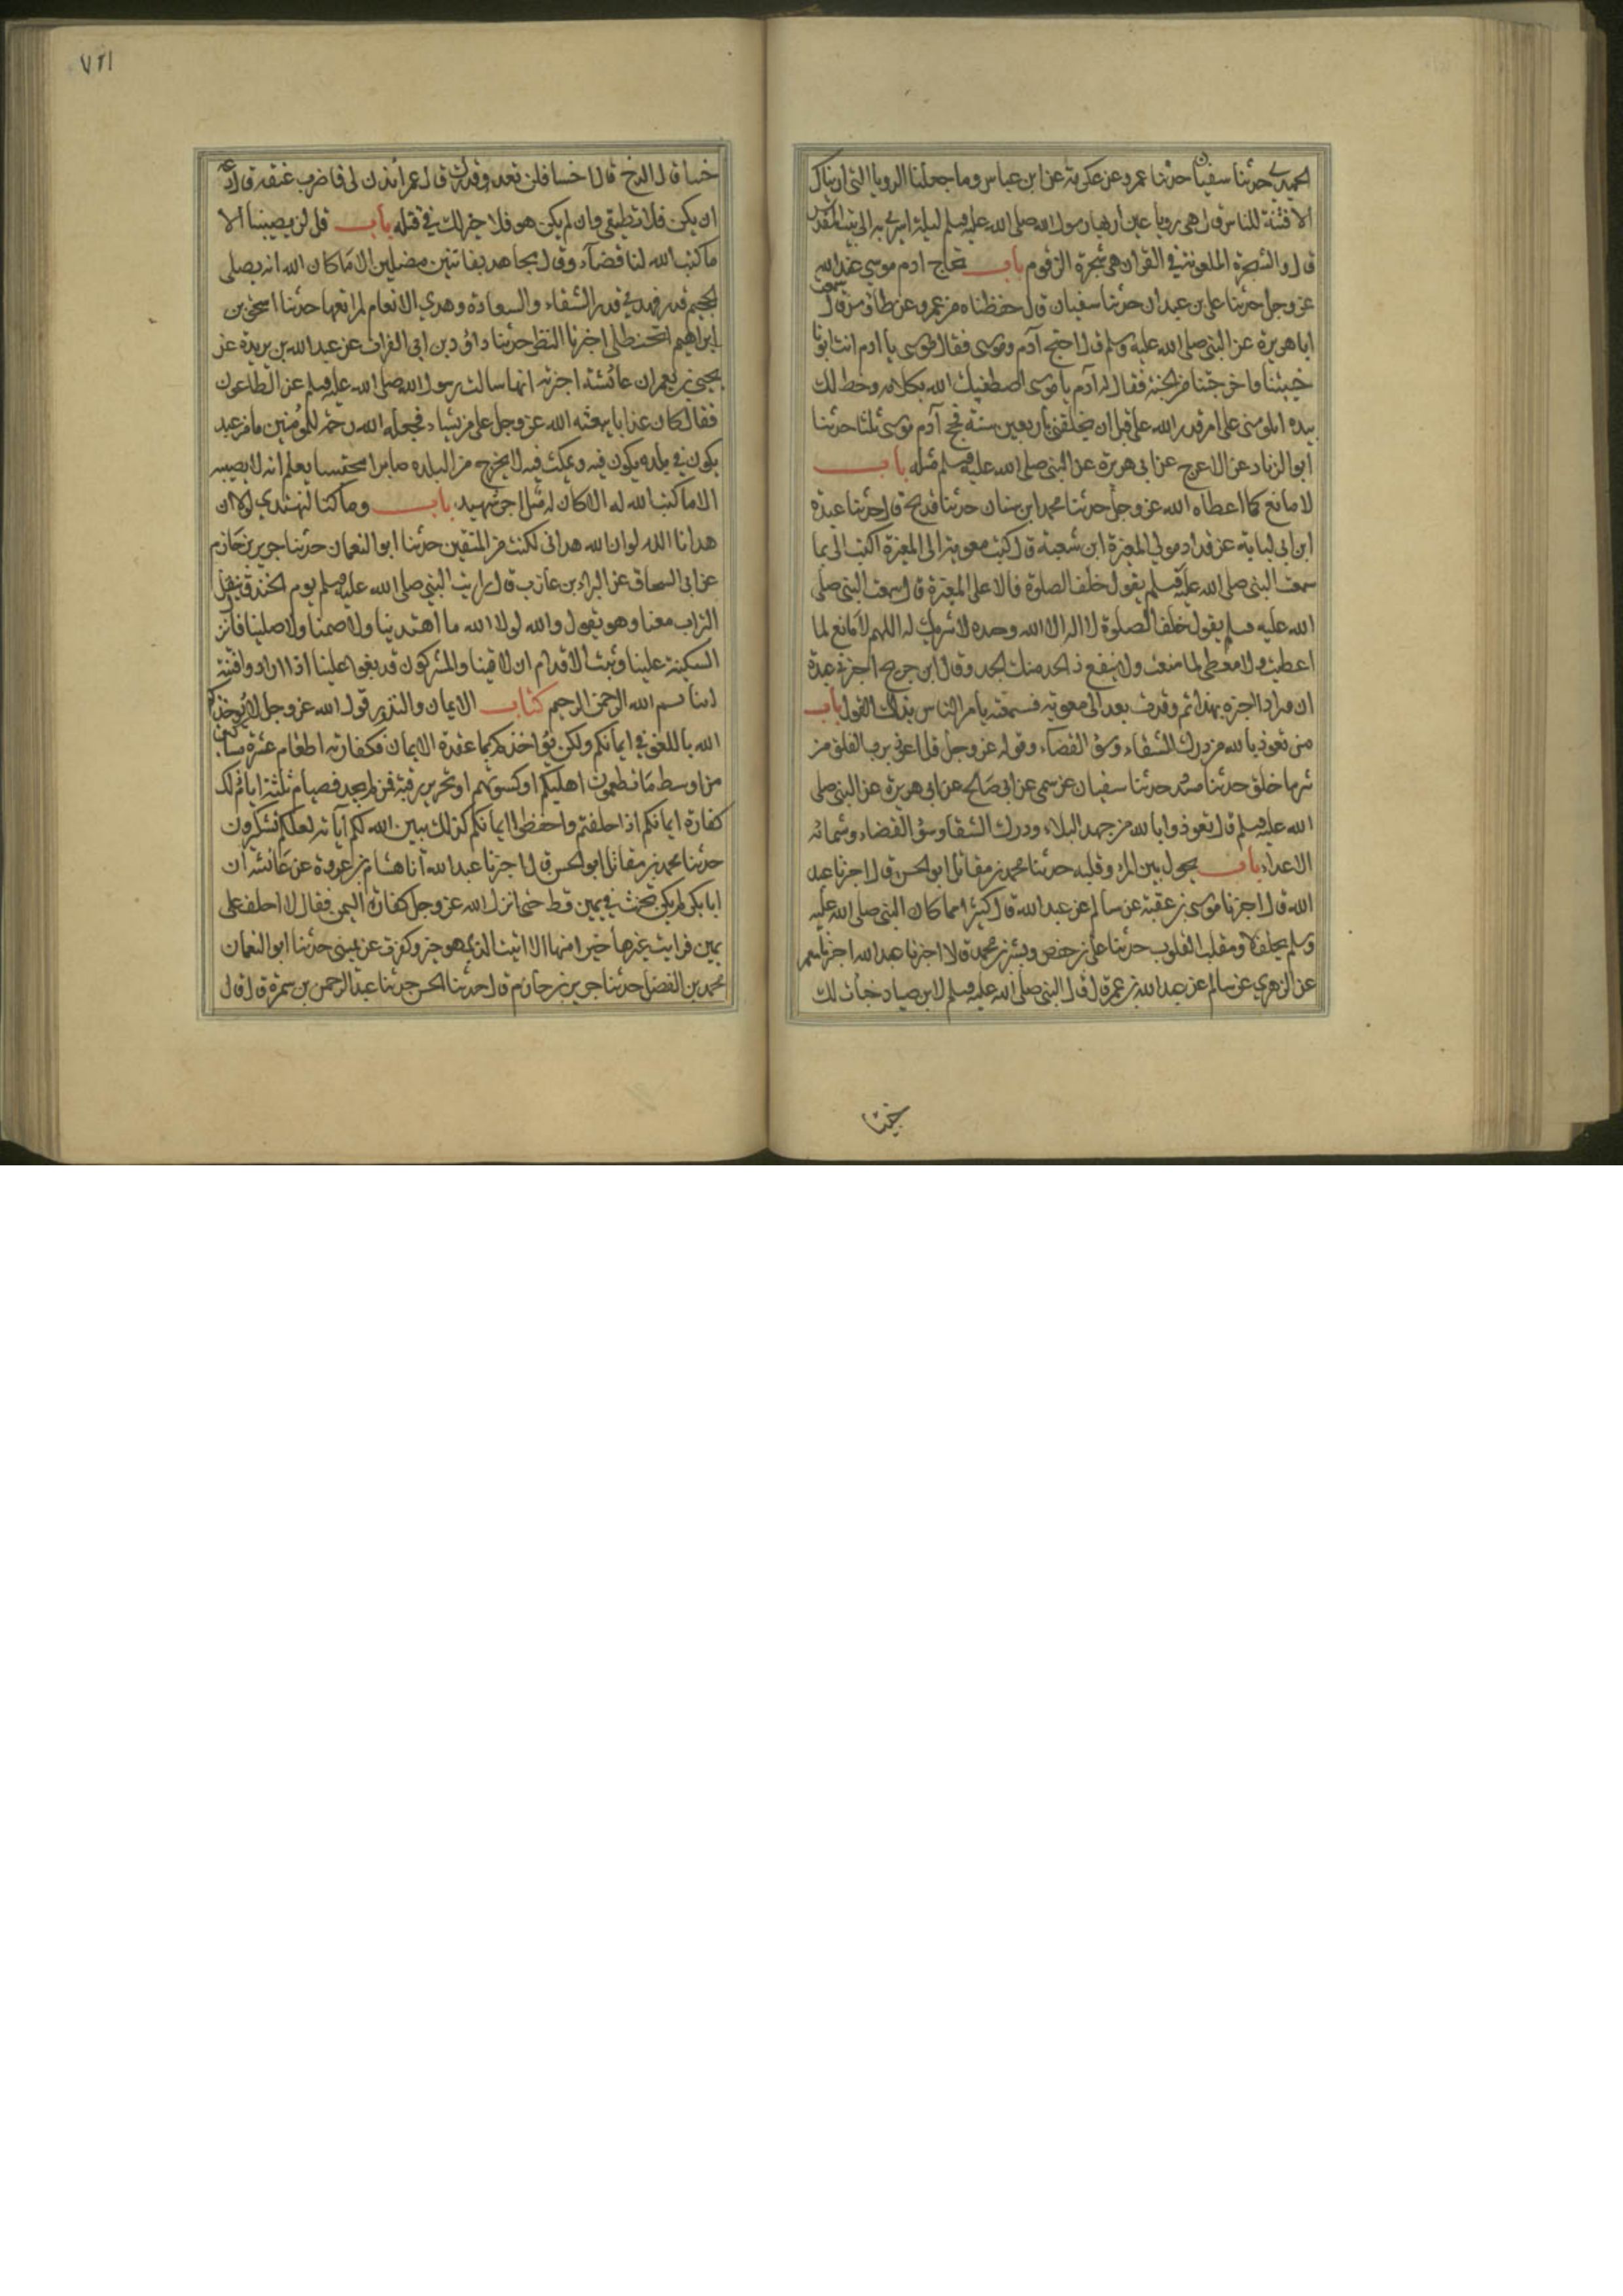 الحميدي حدثنا سفين حدثنا عمرو عن عكرمة عن ابن عباس وما جعلنا الرويا التي اريناك
الا فتنة للناس قال هي رويا عين اريها رسول الله صلى الله عليه وسلم ليلة اسري به الى بيت المقدس
قال والشجرة الملعونة في القران هي شجرة الزقوم باب تحاج ادم موسى عند الله
عز وجل حدثنا علي بن عبدان حدثنا سفيان قال حفظناه من عمرو عن طاوس قال سمعت
ابا هريرة عن النبي صلى الله عليه وسلم قال احتج آدم وموسى فقال موسى يا ادم انت ابونا
خيبتنا واخرجتنا من الجنة فقال له آدم يا موسى اصطفيك الله بكلامه وخط لك
بيده اتلومني على امر قدر الله علي قبل ان يخلقني باربعين سنة فحج آدم موسى ثلثا حدثنا
ابو الزناد عن الاعرج عن ابي هريرة عن النبي صلى الله عليه وسلم مثله باب
لا مانع لما اعطاه الله عز وجل حدثنا محمد ابن سنان حدثنا فليح قال حدثنا عبدة
ابن ابي لبابة عن وراد مولي المغيرة ابن شعبة قال كتب معوية الى المغيرة اكتب الي بما
سمعت النبي صلى الله عليه وسلم يقول خلف الصلوة فاملا علي المغيرة قال سمعت النبي صلى
الله عليه وسلم يقول خلف الصلوة لا اله الا الله وحده لا شريك له اللهم لا مانع لما
اعطيت ولا معطي لما منعت ولا ينفع ذ الجد منك الجد وقال ابن جريج اخبرني عبدة
ان ورادا اخبره بهذا ثم وفدت بعد الى معوية فسمعته يامر الناس بذلك القول باب
من تعوذ بالله من درك الشقاء وسؤ القضاء وقوله عز وجل قل اعوذ برب الفلق من
شر ما خلق حدثنا مسدد حدثنا سفيان عن سمي عن ابي صالح عن ابي هريرة عن النبي صلى
الله عليه وسلم قال تعوذوا بالله من جهد البلاء ودرك الشقا وسؤ القضاء وشماتة
الاعداء باب يحول بين المرء وقلبه حدثنا محمد بن مقاتل ابو الحسن قال اخبرنا عبد
الله قال اخبرنا موسى بن عقبة عن سالم عن عبد الله قال كثيرا مما كان النبي صلى الله عليه
وسلم يحلف لا ومقلب القلوب حدثنا علي بن حفص وبشر بن محمد قالا اخبرنا عبد الله اخبرنا معمر
عن الزهري عن سالم عن عبد الله بن عمر قال قال النبي صلى الله عليه وسلم لابن صياد خبات لك
خبيئا
٧٢١
خبيئا قال الدخ قال اخسا فلن تعدو قدرك قال عمر ائذن لي فاضرب عنقه قال دعه
ان يكن فلا تطيقه وان لم يكن هو فلا خير لك في قتله باب قل لن يصيبنا الا
ما كتب الله لنا قضاء وقال مجاهد بفاتنين مضلين الا ما كان الله انه يصلى
الجحيم قدر فهدى قدر الشقاء والسعادة وهدي الانعام لمراتعها حدثنا اسحق بن
ابراهيم الحنظلي اخبرنا النظر حدثنا داؤد بن ابي الفرات عن عبد الله بن بريدة عن
يحيى بن يعمر ان عائشة اخبرته انها سالت رسول الله صلى الله عليه وسلم عن الطاعون
فقال كان عذابا يبعثه الله عز وجل على من يشاء فجعله الله رحمة للمؤمنين ما من عبد
يكون في بلده يكون فيه ويمكث فيه لا يخرج من البلدة صابرا محتسبا يعلم انه لا يصيبه
الا ما كتب الله له الا كان له مثل اجر شهيد باب وما كنا لنهتدي لولا ان
هدانا الله لو ان الله هداني لكنت من المتقين حدثنا ابو النعمان حدثنا جرير بن حازم
عن ابي اسحاق عن البراء بن عازب قال رايت النبي صلى الله عليه وسلم يوم الخندق ينقل
التراب معنا وهو يقول والله لولا الله ما اهتدينا ولا صمنا ولا صلينا فانزلن
السكينة علينا وثبت الاقدام ان لاقينا والمشركون قد بغوا علينا اذا ارادوا فتنة
ابينا بسم الله الرحمن الرحيم كتاب الايمان والنذور قول الله عز وجل لا يؤاخذكم
الله باللغو في ايمانكم ولكن يؤاخذكم بما عقدتم الايمان فكفارته اطعام عشرة مساكين
من اوسط ما تطعمون اهليكم او كسوتهم او تحرير رقبة فمن لم يجد فصيام ثلثة ايام ذلك
كفارة ايمانكم اذا حلفتم واحفظوا ايمانكم كذلك يبين الله لكم آياته لعلكم تشكرون
حدثنا محمد بن مقاتل ابو الحسن قال اخبرنا عبد الله انا هشام بن عروة عن عائشة ان
ابا بكر لم يكن يحنث في يمين قط حتى انزل الله عز وجل كفارة اليمين فقال لا احلف على
يمين فرايت غيرها خيرا منها الا اتيت الذي هو خير وكفرت عن يميني حدثنا ابو النعمان
محمد بن الفضل حدثنا جرير بن حازم قال حدثنا الحسن حدثنا عبد الرحمن بن سمرة قال قال